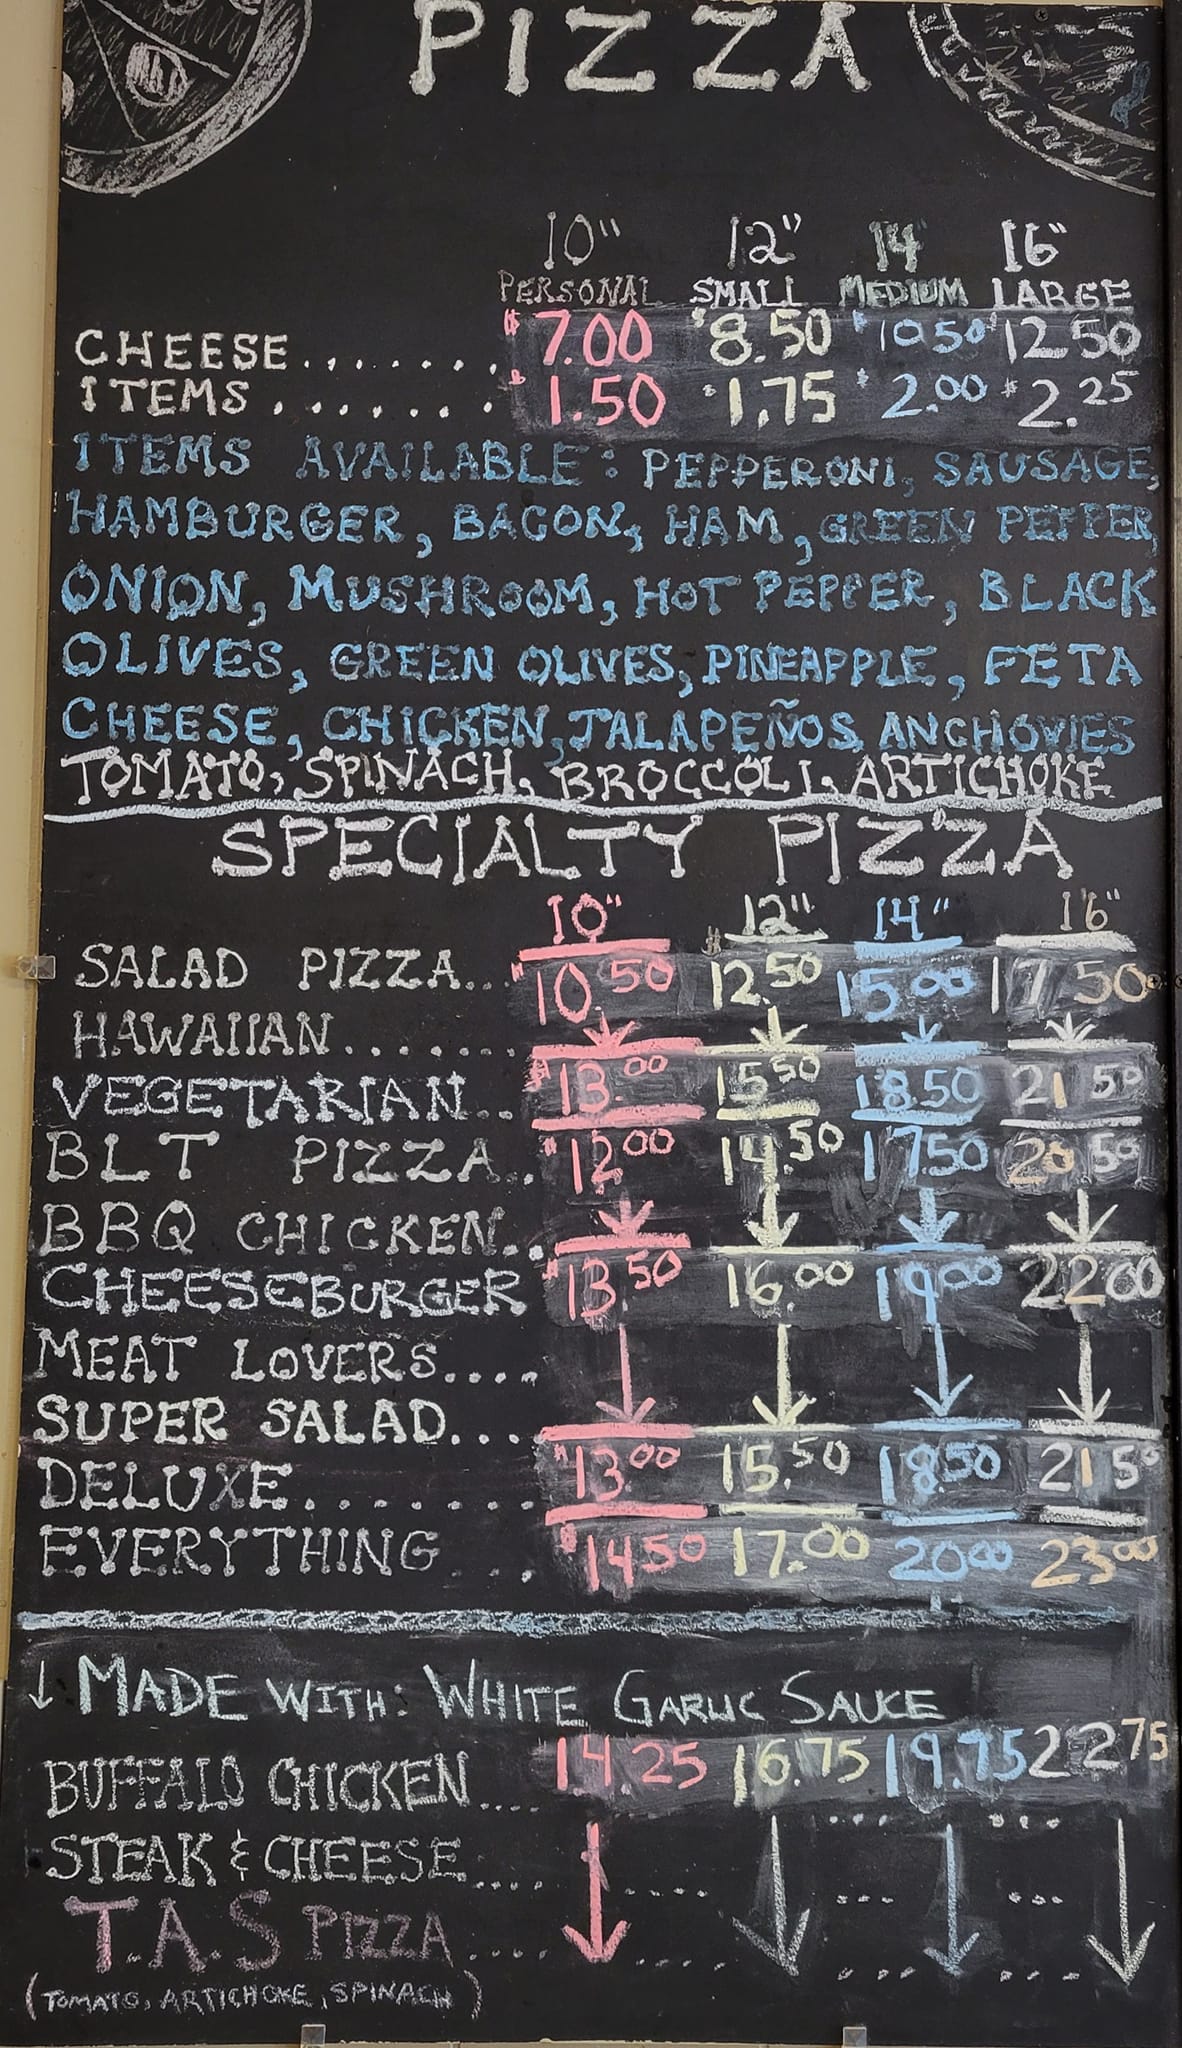 PIZZA
10" 12" 14" 16"
PERSONAL SMALL MEDIUM LARGE
CHEESE........ $7.00 $8.50 $10.50 $12.50
ITEMS........ $1.50 $1.75 $2.00 $2.25
ITEMS AVAILABLE: PEPPERONI, SAUSAGE,
HAMBURGER, BACON, HAM, GREEN PEPPER,
ONION, MUSHROOM, HOT PEPPER, BLACK
OLIVES, GREEN OLIVES, PINEAPPLE, FETA
CHEESE, CHICKEN, JALAPEÑOS, ANCHOVIES
TOMATO, SPINACH, BROCCOLI, ARTICHOKE
SPECIALTY PIZZA
10" 12" 14" 16"
SALAD PIZZA... $10.50 $12.50 15.00 17.50
HAWAIIAN........
VEGETARIAN... $13.00 15.50 18.50 21.50
BLT PIZZA... $12.00 14.50 17.50 20.50
BBQ CHICKEN...
CHEESEBURGER $13.50 16.00 19.00 22.00
MEAT LOVERS....
SUPER SALAD...
DELUXE........ $13.00 15.50 18.50 21.50
EVERYTHING.... $14.50 17.00 20.00 23.00
↓ MADE WITH: WHITE GARLIC SAUCE
BUFFALO CHICKEN.... 14.25 16.75 19.75 22.75
STEAK & CHEESE....
T.A.S PIZZA....
(TOMATO, ARTICHOKE, SPINACH)